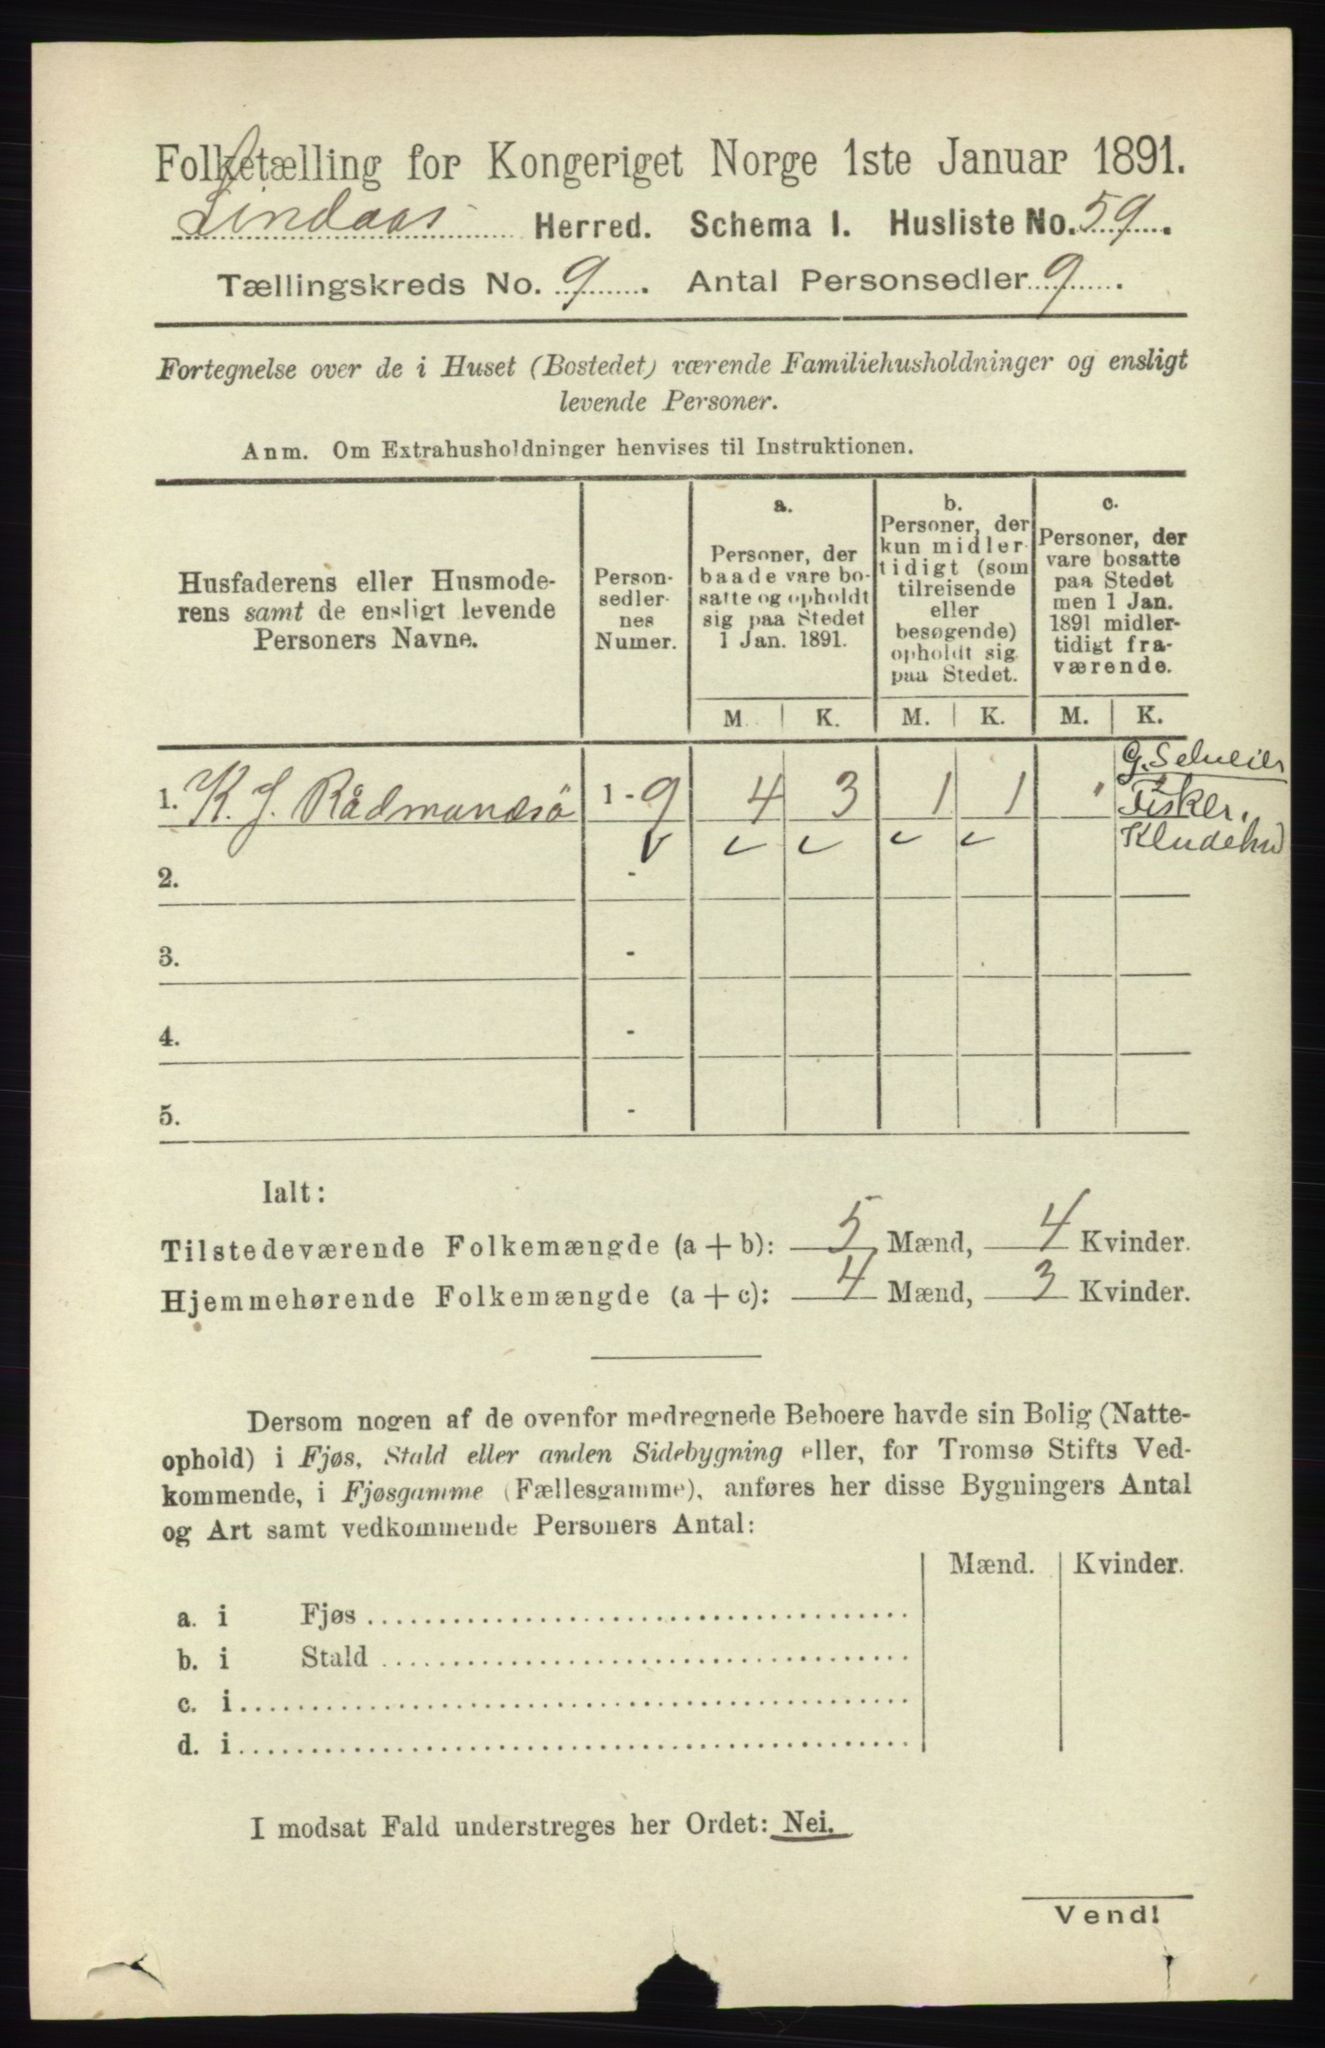 Folketælling for Kongeriget Norge 1ste Januar 1891.
Lindaas Herred. Schema I. Husliste No. 59.
Tællingskreds No. 9. Antal Personsedler 9.
Fortegnelse over de i Huset (Bostedet) værende Familiehusholdninger og ensligt
levende Personer.
Anm. Om Extrahusholdninger henvises til Instruktionen.
Husfaderens eller Husmode-
rens samt de ensligt levende
Personers Navne.
Person-
sedler-
nes
Numer.
a.
Personer, der
baade vare bo-
satte og opholdt
sig paa Stedet
1 Jan. 1891.
b.
Personer, der
kun midler-
tidigt (som
tilreisende
eller
besøgende)
opholdt sig
paa Stedet.
c.
Personer, der
vare bosatte
paa Stedet
men 1 Jan.
1891 midler-
tidigt fra-
værende.
M. K. M. K. M. K.
G. Selveier
Fisker.
1. K. J. Rådmandsö 1 - 9 4 3 1 1
2. -
3. -
4. -
5. -
Ialt:
Tilstedeværende Folkemængde (a + b): 5 Mænd, 4 Kvinder.
Hjemmehørende Folkemængde (a + c): 4 Mænd, 3 Kvinder.
Dersom nogen af de ovenfor medregnede Beboere havde sin Bolig (Natte-
ophold) i Fjøs, Stald eller anden Sidebygning eller, for Tromsø Stifts Ved-
kommende, i Fjøsgamme (Fællesgamme), anføres her disse Bygningers Antal
og Art samt vedkommende Personers Antal:
Mænd. Kvinder.
a. i Fjøs
b. i Stald
c. i
d. i
I modsat Fald understreges her Ordet: Nei.
Vend!